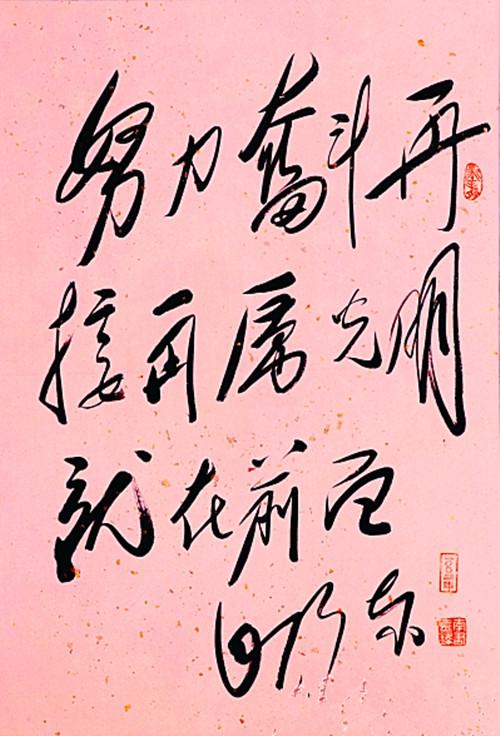 努力奮斗再
接再厲光明
就在前面
东